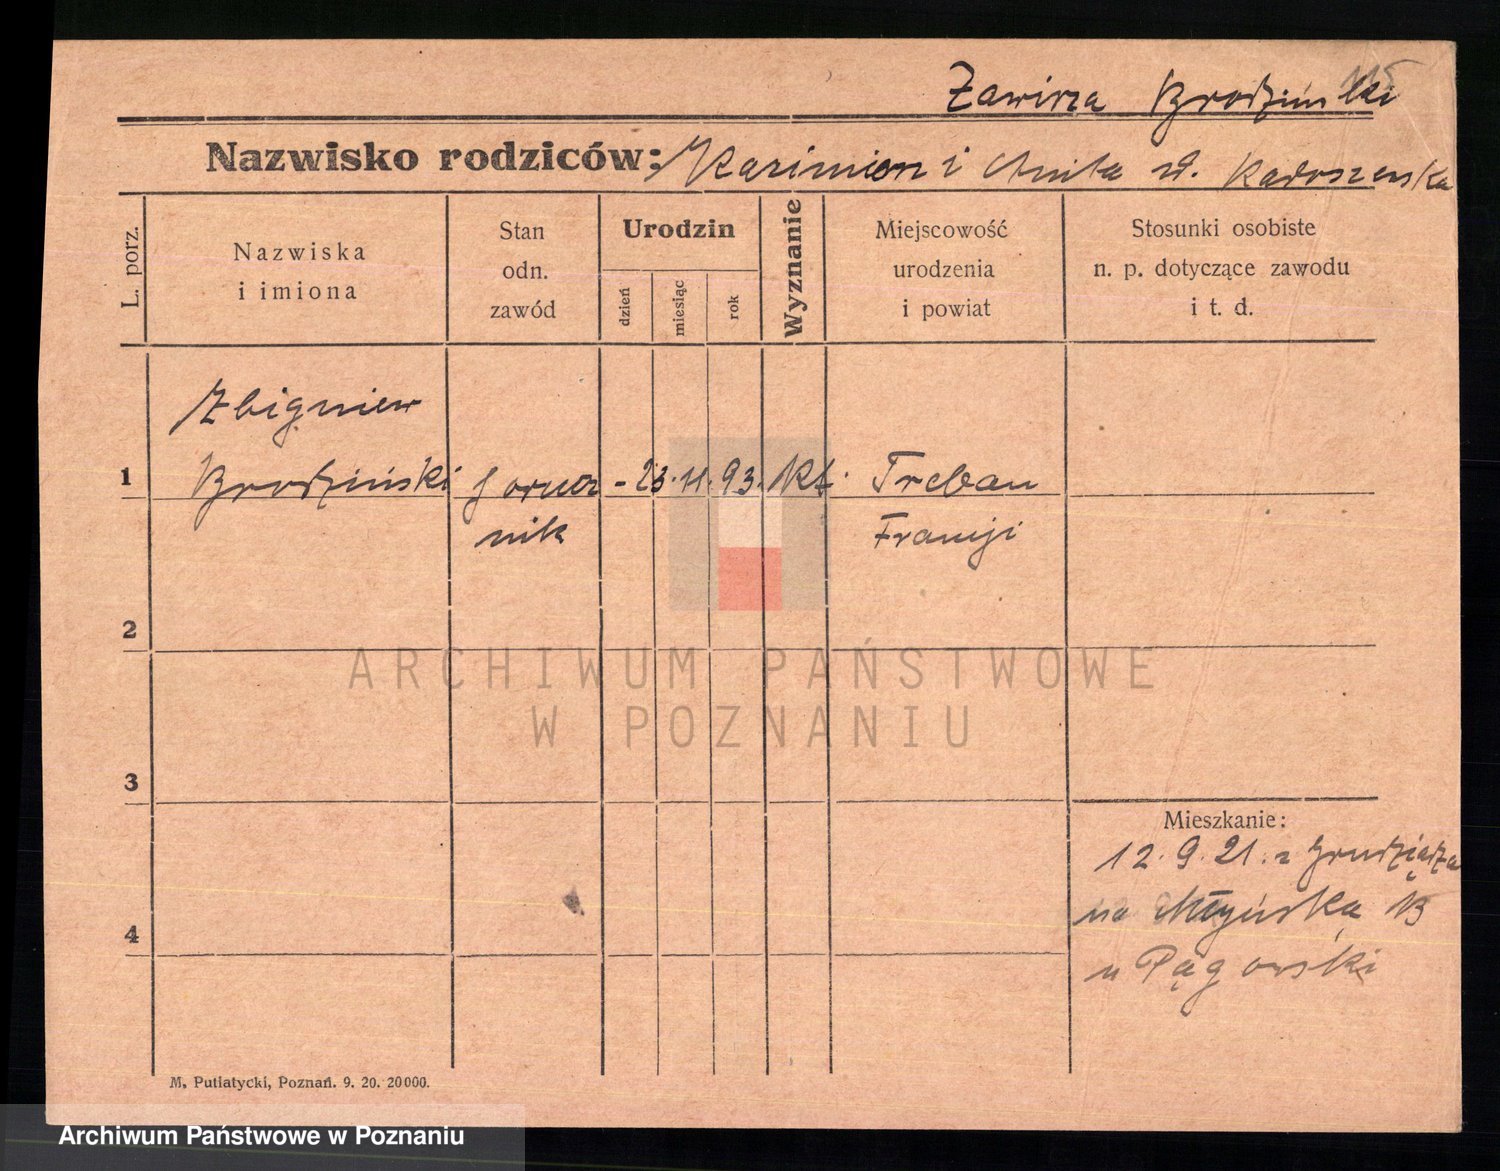 115
Zawirza Brodziński
Nazwisko rodziców: Kazimierz i Anita
L. porz.
Nazwiska
i imiona
Stan
odn.
zawód
Urodzin
dzień
miesiąc
rok
Wyznanie
Miejscowość
urodzenia
i powiat
Stosunki osobiste
n. p. dotyczące zawodu
i t. d.
Zbigniew
1 Brodziński - 23. 11. 93. kt. Treban
nik
2
3
4
Mieszkanie:
12. 9. 21. z Grudziądza
na Młyńska 13
u Pągorski
M. Putiatycki, Poznań. 9. 20. 20000.
ARCHIWUM PAŃSTWOWE
W POZNANIU
Archiwum Państwowe w Poznaniu